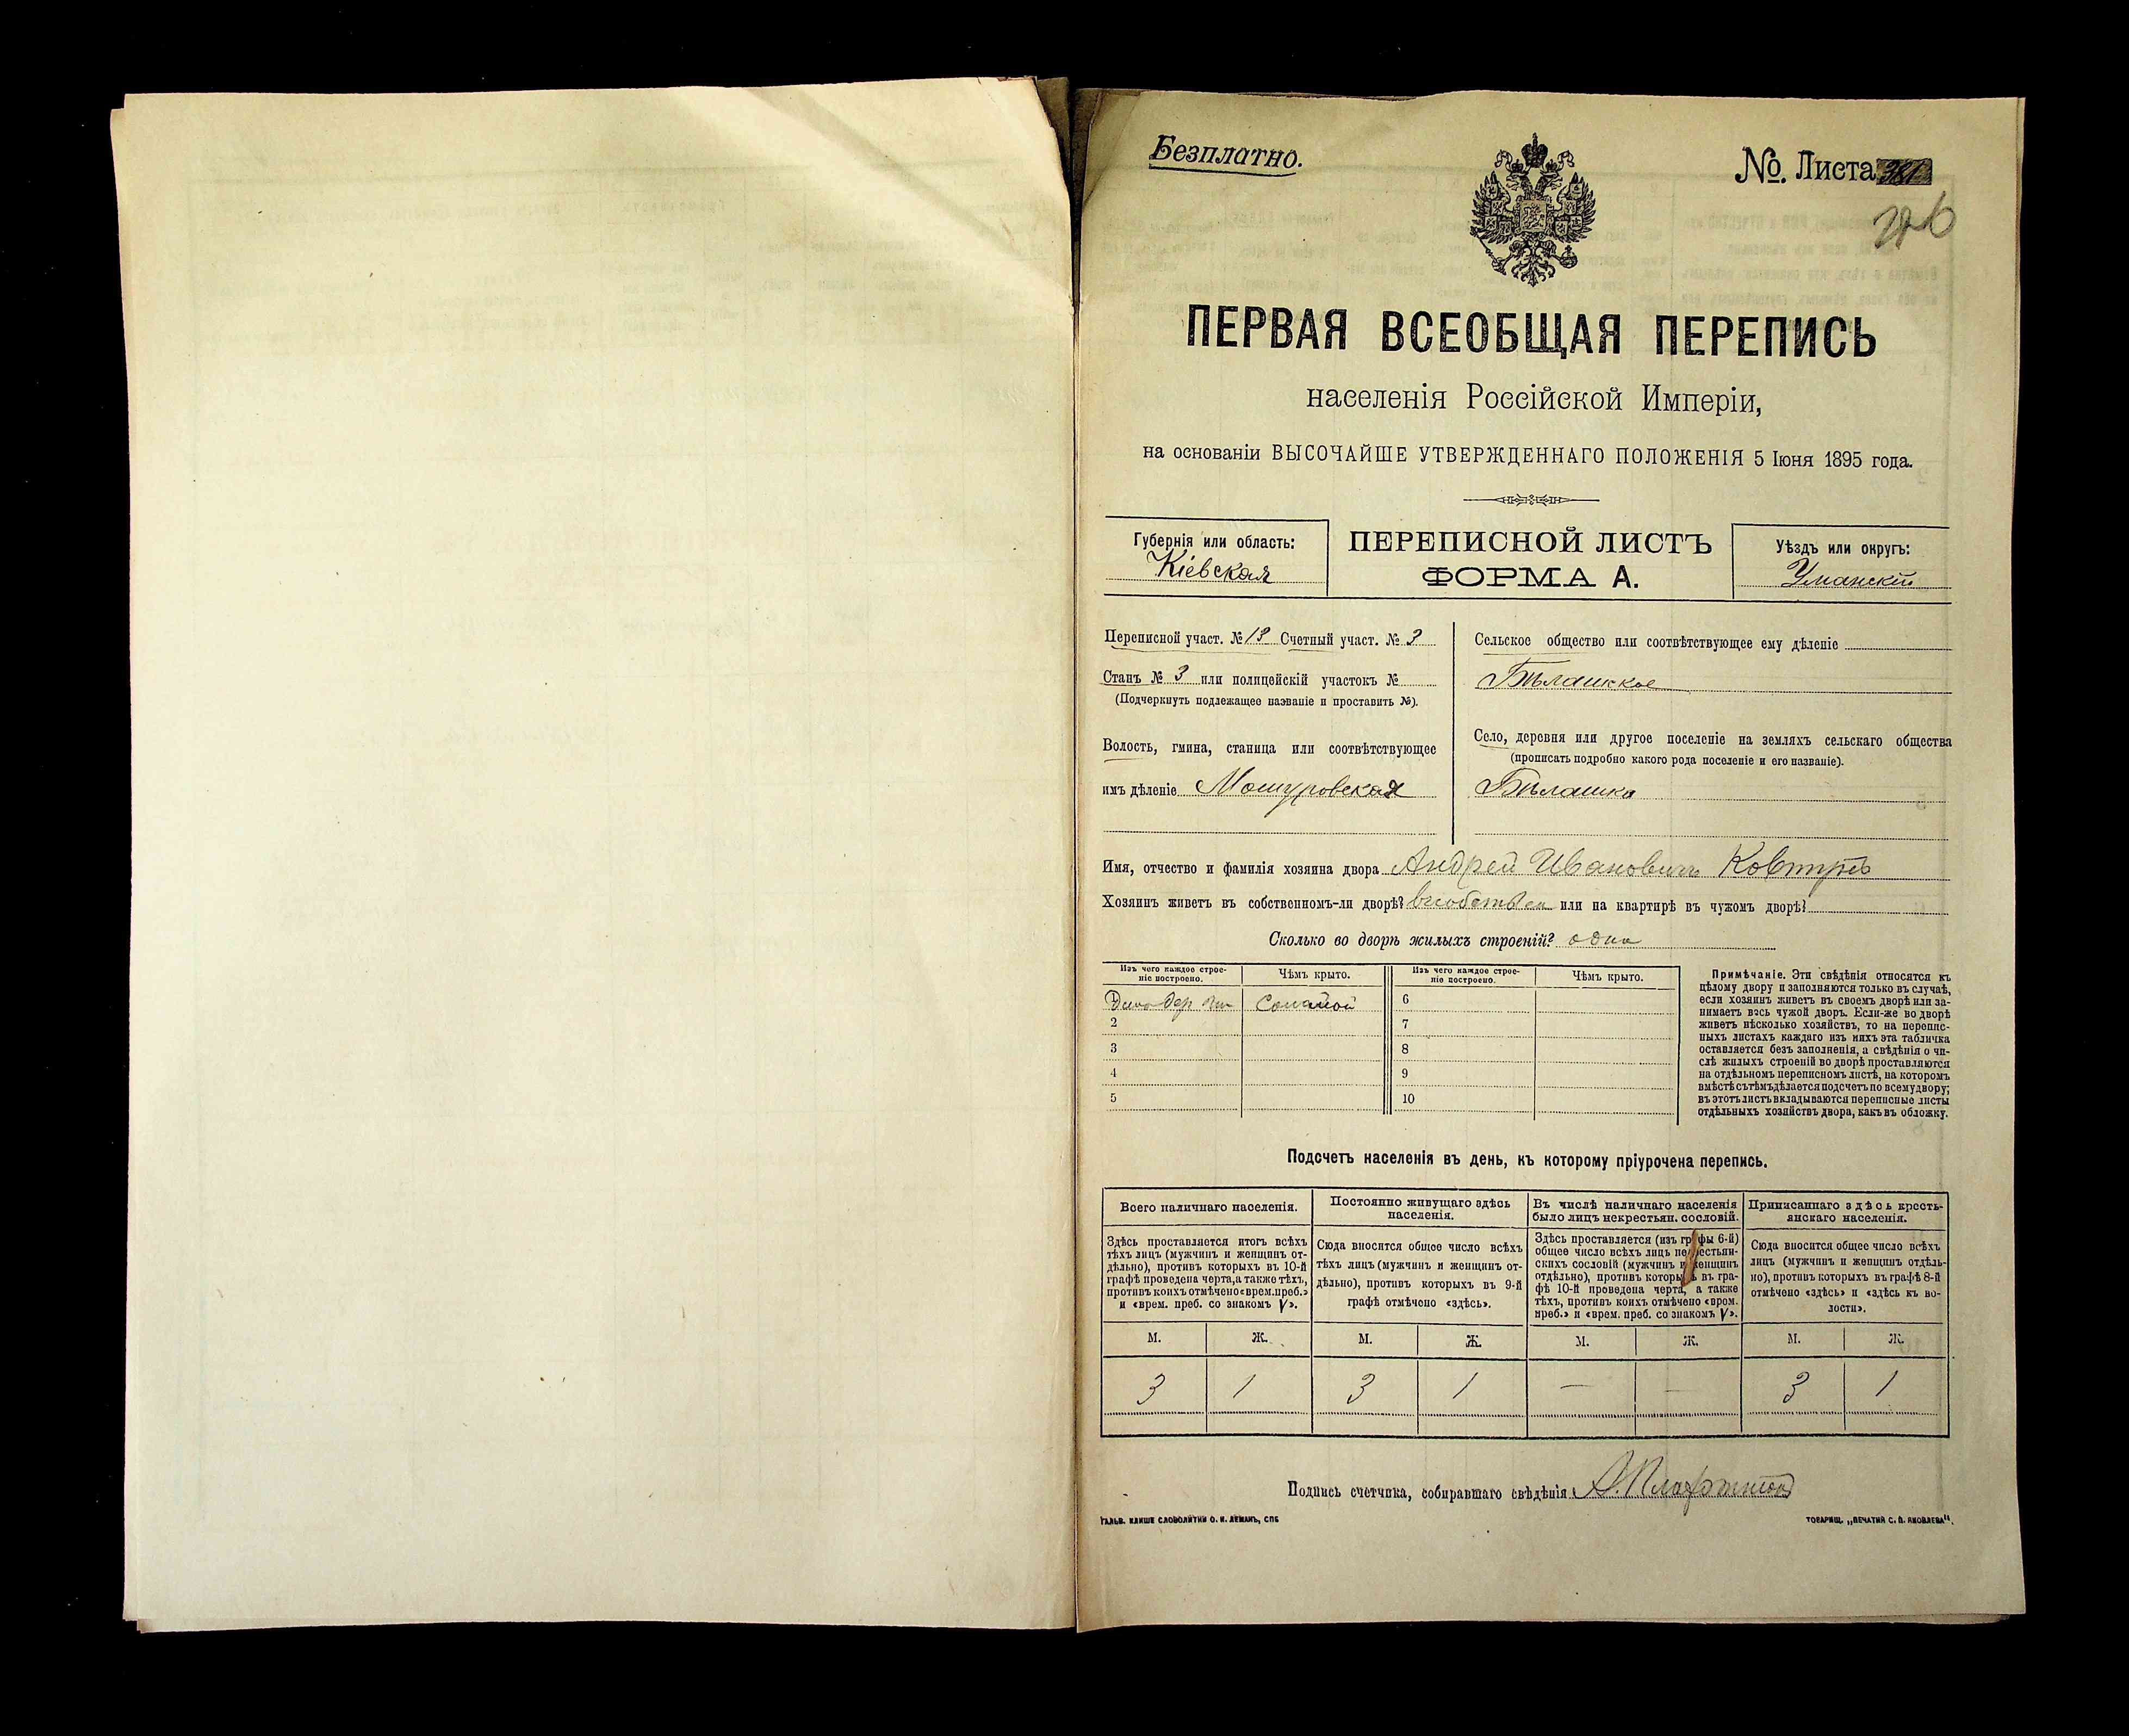 Безплатно.
№. Листа 381
ПЕРВАЯ ВСЕОБЩАЯ ПЕРЕПИСЬ
населенія Россійской Имперіи,
на основаніи ВЫСОЧАЙШЕ УТВЕРЖДЕННАГО ПОЛОЖЕНІЯ 5 Іюня 1895 года.
Губернія или область:
Кіевская
ПЕРЕПИСНОЙ ЛИСТЪ
ФОРМА А.
Уѣздъ или округъ:
Уманскій
Переписной участ. № 13 Счетный участ. № 3
Станъ № 3 или полицейскій участокъ №
(Подчеркнуть подлежащее названіе и проставить №).
Волость, гмина, станица или соотвѣтствующее
имъ дѣленіе Мошуровская
Сельское общество или соотвѣтствующее ему дѣленіе
Бѣлашкое
Село, деревня или другое поселеніе на земляхъ сельскаго общества
(прописать подробно какого рода поселеніе и его названіе).
Бѣлашка
Имя, отчество и фамилія хозяина двора Андрей Ивановичъ
Хозяинъ живетъ въ собственномъ-ли дворѣ? или на квартирѣ въ чужомъ дворѣ?
Сколько во дворѣ жилыхъ строеній? одна
Изъ чего каждое строе-
ніе построено.
Чѣмъ крыто.
Изъ чего каждое строе-
ніе построено.
Чѣмъ крыто.
Соламой
6
2
7
3
8
4
9
5
10
Примѣчаніе. Эти свѣдѣнія относятся къ
цѣлому двору и заполняются только въ случаѣ,
если хозяинъ живетъ въ своемъ дворѣ или за-
нимаетъ весь чужой дворъ. Если-же во дворѣ
живетъ нѣсколько хозяйствъ, то на перепис-
ныхъ листахъ каждаго изъ нихъ эта табличка
оставляется безъ заполненія, а свѣдѣнія о чи-
слѣ жилыхъ строеній во дворѣ проставляются
на отдѣльномъ переписномъ листѣ, на которомъ
вмѣстѣ съ тѣмъ дѣлается подсчетъ по всему двору;
въ этотъ листъ вкладываются переписные листы
отдѣльныхъ хозяйствъ двора, какъ въ обложку.
Подсчетъ населенія въ день, къ которому пріурочена перепись.
Всего наличнаго населенія.
Постоянно живущаго здѣсь
населенія.
Въ числѣ наличнаго населенія
было лицъ некрестьян. сословій.
Приписаннаго здѣсь кресть-
янскаго населенія.
Здѣсь проставляется итогъ всѣхъ
тѣхъ лицъ (мужчинъ и женщинъ от-
дѣльно), противъ которыхъ въ 10-й
графѣ проведена черта, а также тѣхъ,
противъ коихъ отмѣчено «врем. преб.»
и «врем. преб. со знакомъ V».
Сюда вносится общее число всѣхъ
тѣхъ лицъ (мужчинъ и женщинъ от-
дѣльно), противъ которыхъ въ 9-й
графѣ отмѣчено «здѣсь».
Здѣсь проставляется (изъ графы 6-й)
общее число всѣхъ лицъ некрестьян-
скихъ сословій (мужчинъ и женщинъ
отдѣльно), противъ которыхъ въ гра-
фѣ 10-й проведена черта, а также
тѣхъ, противъ коихъ отмѣчено «врем.
преб.» и «врем. преб. со знакомъ V».
Сюда вносится общее число всѣхъ
лицъ (мужчинъ и женщинъ отдѣль-
но), противъ которыхъ въ графѣ 8-й
отмѣчено «здѣсь» и «здѣсь къ во-
лости».
М. Ж. М. Ж. М. Ж. М. Ж.
3 1 3 1 — — 3 1
Подпись счетчика, собиравшаго свѣдѣнія
ГАЛЬВ. КЛИШЕ СЛОВОЛИТНИ О. И. ЛЕМАНЪ, СПБ
ТОВАРИЩ. „ПЕЧАТНЯ С. П. ЯКОВЛЕВА“.